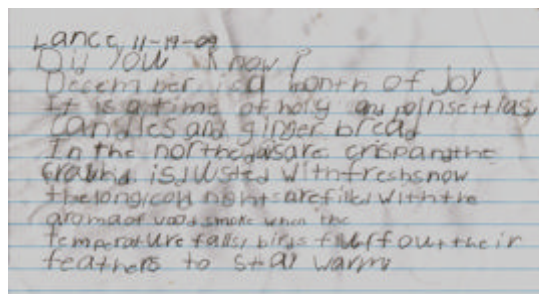 Lance 11-19-09
Did You Know?
December is a month of Joy
It is a time of holy and poinsettias,
candles and ginger bread
In the north days are crisp and the
Ground is dusted with fresh snow
the long, cold nights are filled with the
aroma of wood smoke when the
temperature falls, birds fluff out their
feathers to stay warm